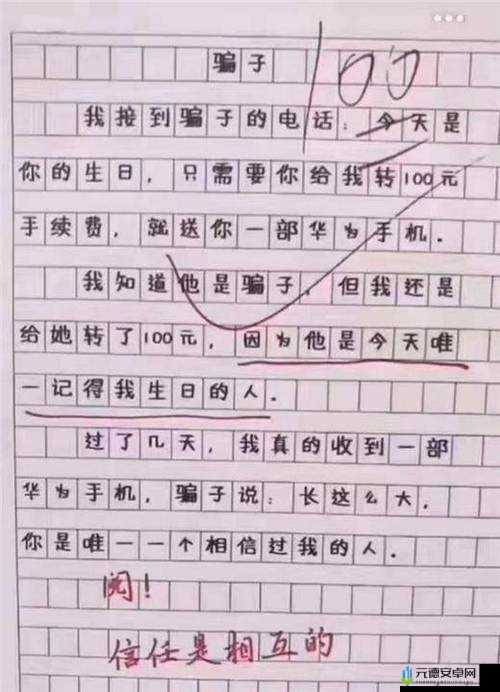 骗子
100
我接到骗子的电话：今天是
你的生日，只需要你给我转100元
手续费，就送你一部华为手机．
我知道他是骗子，但我还是
给她转了100元，因为他是今天唯
一记得我生日的人．
过了几天，我真的收到一部
华为手机，骗子说：长这么大，
你是唯一一个相信过我的人．
阅！
信任是相互的
元德安卓网